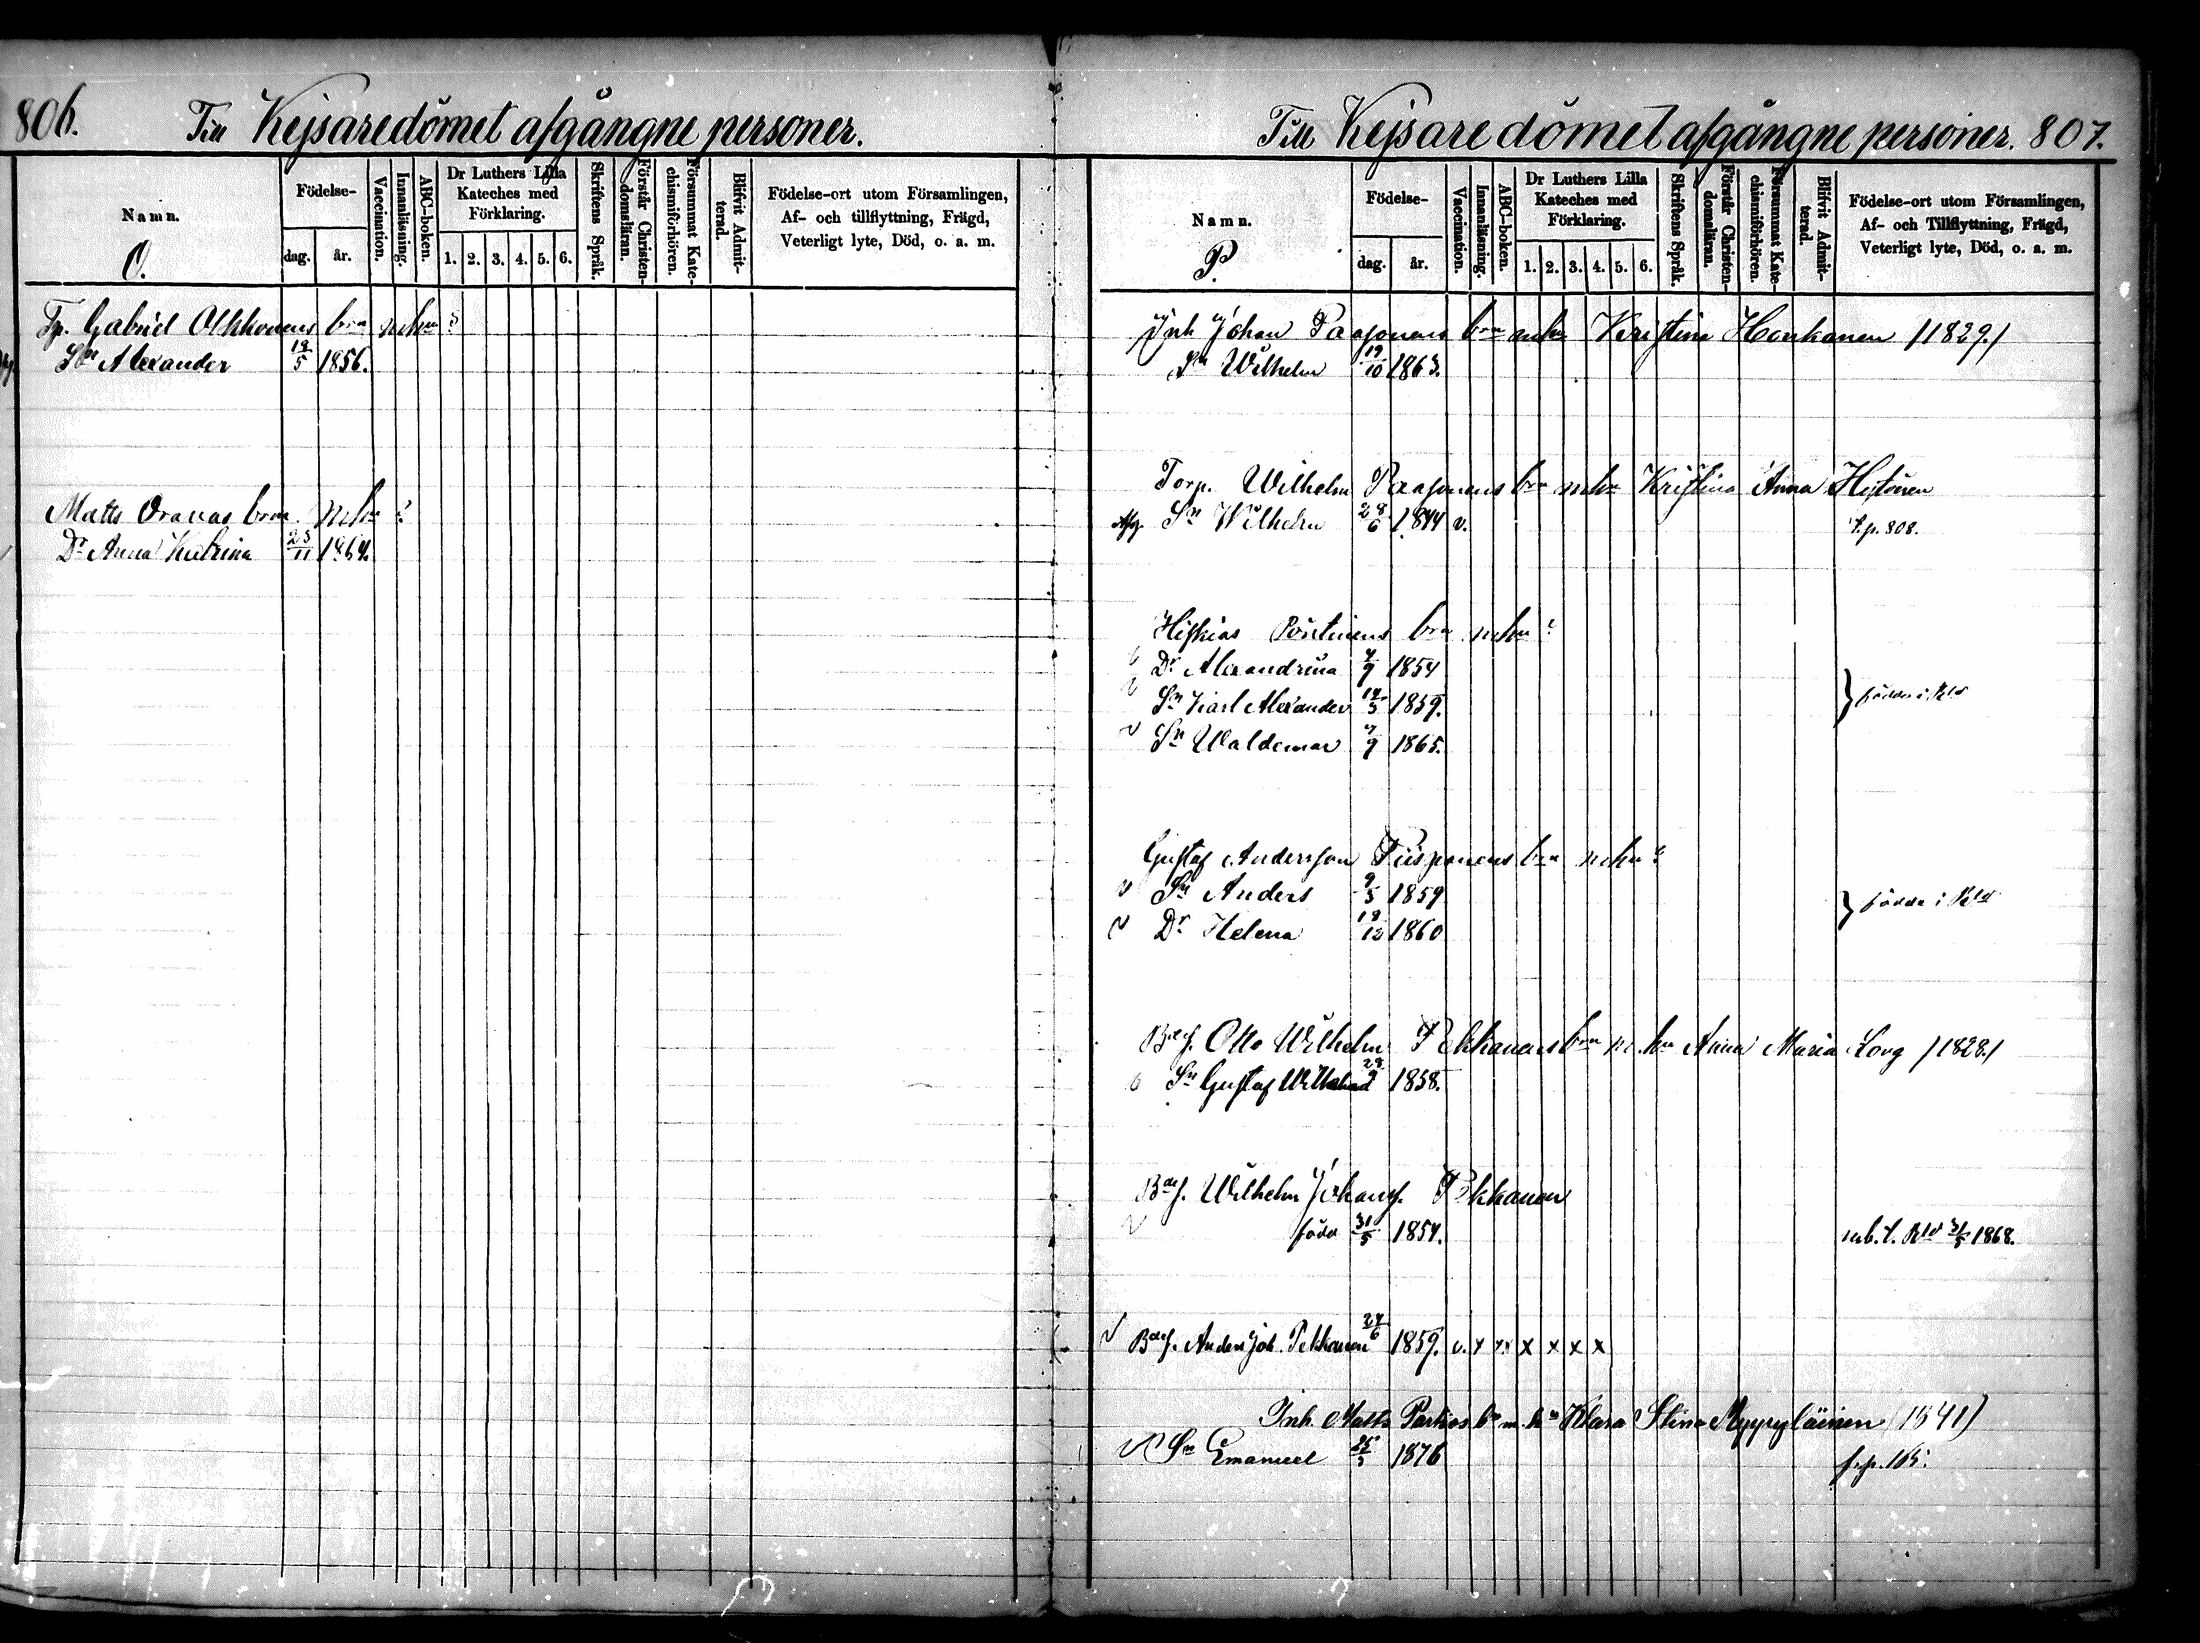 806.
Till Kejsaredömet afgångne personer.
Namn.
O.
Födelse-
dag.
år.
Vaccination.
Innanläsning.
ABC-boken.
Dr Luthers Lilla
Kateches med
Förklaring.
1. 2. 3. 4. 5. 6.
Skriftens Språk.
Förstår Christen-
domsläran.
Försummat Kate-
chismiförhören.
Blifvit Admit-
terad.
Födelse-ort utom Församlingen,
Af- och tillflyttning, Frägd,
Veterligt lyte, Död, o. a. m.
Tp. Gabriel Olkkonens brn m hu ?
Sn Alexander 18/5 1856.
Matts Oravas brn m hu ?
Dr Anna Katrina 25/11 1864.
Till Kejsaredömet afgångne personer. 807.
Namn.
P.
Födelse-
dag.
år.
Vaccination.
Innanläsning.
ABC-boken.
Dr Luthers Lilla
Kateches med
Förklaring.
1. 2. 3. 4. 5. 6.
Skriftens Språk.
Förstår Christen-
domsläran.
Försummat Kate-
chismiförhören.
Blifvit Admit-
terad.
Födelse-ort utom Församlingen,
Af- och Tillflyttning, Frägd,
Veterligt lyte, Död, o. a. m.
Inh Johan Paajonens brn m hu Kristina Honkanen /1829/
Sn Wilhelm 19/10 1863.
Torp. Wilhelm Paajonens brn m hu Kristina Anna
Afg. Sn Wilhelm 28/6 1844 v. t.p. 808.
Hiskias Pöntinens brn m hu ?
Dr Alexandrina 4/9 1854
Sn Karl Alexander 14/5 1859. } födde i Rld
v Sn Waldemar 4/9 1865.
Gustaf Andersson Piisponens brn m hu ?
v Sn Anders 9/5 1859 } födde i Rld
v Dr Helena 18/12 1860
Bdes. Otto Wilhelm Pekkanens brn m. hu Anna Maria Long /1828/
Sn Gustaf Wilhelm 28/9 1858.
Bdes. Wilhelm Johans. Pekkanen
v född 31/5 1854. utb. t. Rld 31/5 1868.
v Bdes. Anders Joh. Pekkanen 24/6 1859. v. x xx x x x x
Inh. Matts Parkias bn m. hu Klara Stina Myyryläinen (1841)
v Sn Emanuel 25/5 1876 f.p. 165.